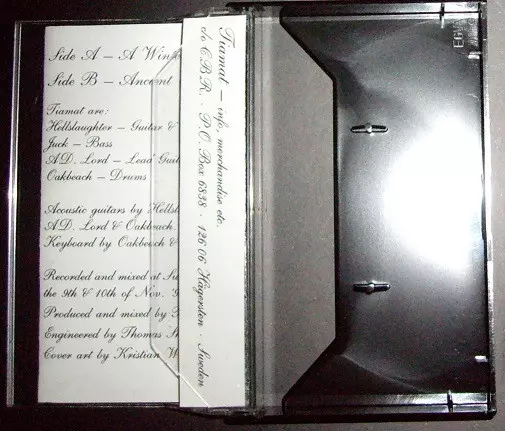 Side A – A Win
Side B – Ancient
Tiamat are:
Hellslaughter – Guitar &
Juck – Bass
A.D. Lord – Lead Guit
Oakbeach – Drums
Acoustic guitars by Hells
A.D. Lord & Oakbeach.
Keyboard by Oakbeach &
Recorded and mixed at Su
the 9th & 10th of Nov. '9
Produced and mixed by
Engineered by Thomas
Cover art by Kristian W
Tiamat – info, merchandise etc.
c/o C.B.R. · P.O. Box 6838 · 126 06 Hägersten · Sweden